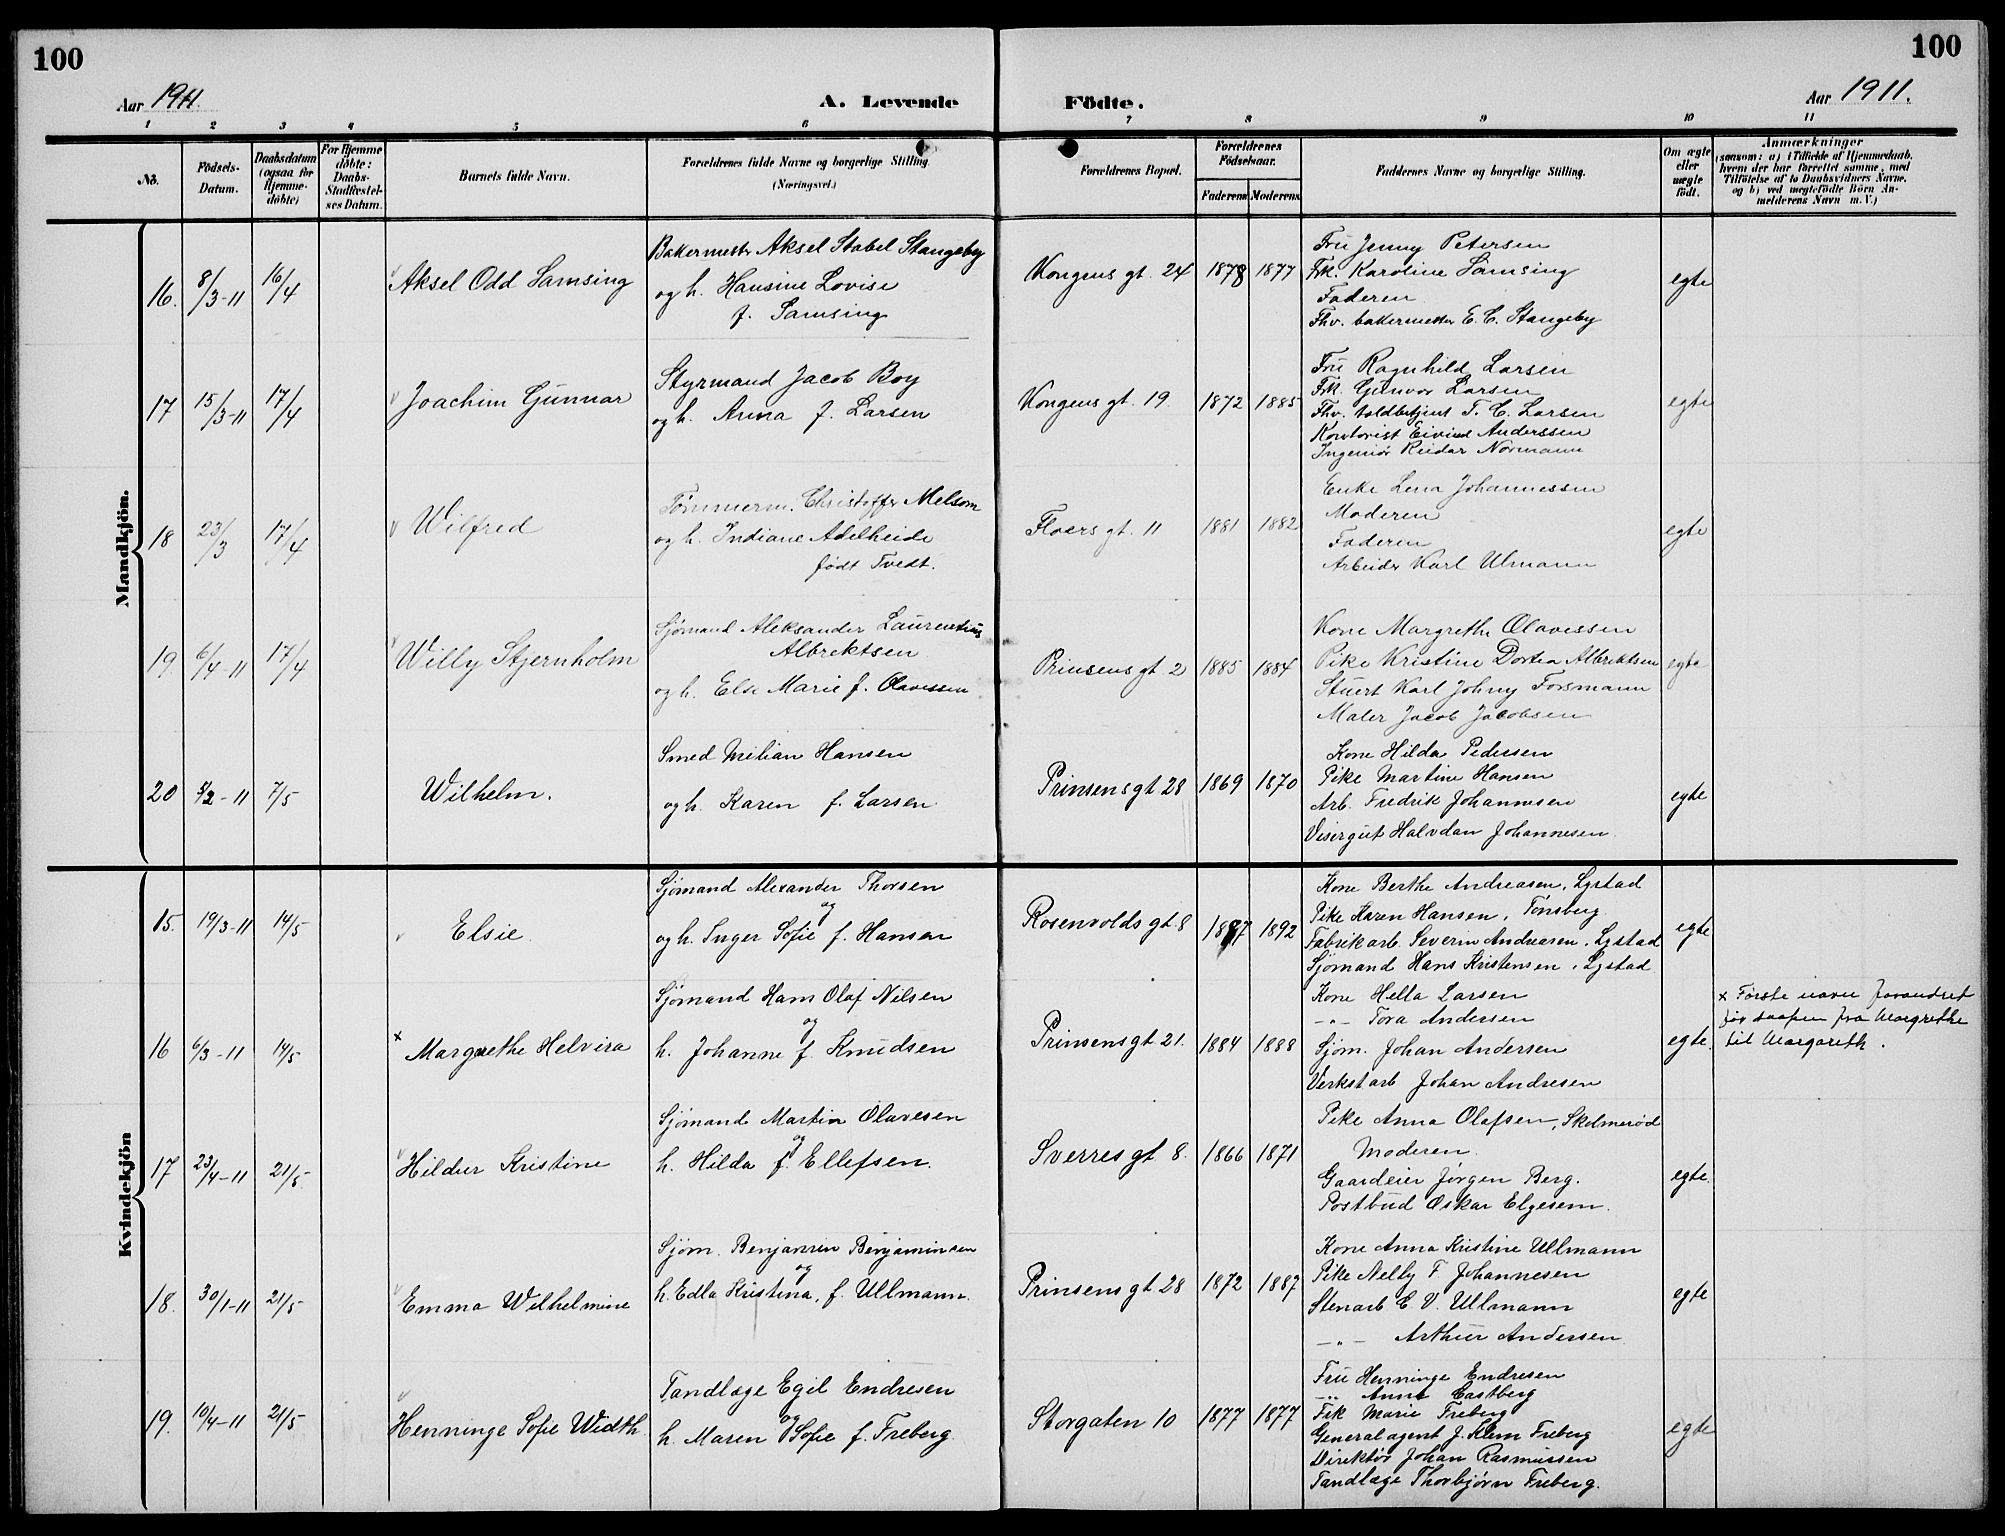 100
100
Aar 1911.
A. Levende Födte.
Aar 1911.
1 2 3 4 5 6 7 8 9 10 11
No.
Födsels-
Datum.
Daabsdatum
(ogsaa for
Hjemme-
döbte)
For Hjemme
döbte:
Daabs-
Stadfæstel-
ses Datum.
Barnets fulde Navn.
Forældrenes fulde Navne og borgerlige Stilling.
(Næringsvei.)
Forældrenes Bopæl.
Forældrenes
Födselsaar.
Faderens Moderens
Faddernes Navne og borgerlige Stilling.
Om ægte
eller
uægte
født.
Anmærkninger
(saasom: a) i Tilfælde af Hjemmedaab,
hvem der har forrettet samme, med
Tilföielse af to Daabsvidners Navne,
og b) ved uegtefödte Börn An-
melderens Navn m. V.)
Mandkjön.
16. 8/3-11 16/4 Aksel Odd Samsing
Bakermestr Aksel Stabel Stangeby
og h. Hansine Lovise
f. Samsing
Kongens gt. 24 1878 1877
Fru Jenny Petersen
Frk. Karoline Samsing
Faderen
Fhv. bakermester E. C. Stangeby
egte
17 15/3-11 17/4 Joachim Gunnar
Styrmand Jacob Boy
og h. Anna f. Larsen
Kongens gt. 19. 1872 1885
Fru Ragnhild Larsen
Frk. Gunvor Larsen
Fhv. toldbetjent T. C. Larsen
Kontorist Eivind Anderssen
Ingeniør Reidar Normann
egte
18 23/3 17/4 Wilfred
Tømmerm. Christoffer Melsom
og h. Indiane Adelheide
født Tvedt.
Floers gt. 11 1881 1882
Enke Lena Johannessen
Moderen
Faderen
Arbeider Karl Ulmann
egte
19. 6/4-11 17/4 Willy Stjernholm
Sjømand Aleksander Laurentius
Albrektsen
og h. Else Marie f. Olavessen
Prinsens gt. 2 1885 1884
Kone Margrethe Olavessen
Pike Kristine Dortea Albrektsen
Stuert Karl Johny Forsmann
Maler Jacob Jacobsen
egte
20 5/2-11 7/5 Wilhelm.
Smed Milian Hansen
og h. Karen f. Larsen
Prinsens gt 28 1869 1870
Kone Hilda Pedersen
Pike Martine Hansen
Arb. Fredrik Johannesen
Visergut Halvdan Johannesen.
egte
Kvindekjön
15. 19/3-11 14/5 Elsie.
Sjømand Alexander Thorsen
og
og h. Inger Sofie f. Hansen
Rosenvolds gt. 8 1887 1892
Kone Berthe Andreasen, Lystad
Pike Karen Hansen, Tønsberg
Fabrikarb. Severin Andreasen, Lystad
Sjømand Hans Kristensen, Lystad
egte
16 6/3-11 14/5 × Margrethe Helvira
Sjømand Hans Olaf Nilsen
og
h. Johanne f. Knudsen
Prinsens gt 21. 1884 1888
Kone Hella Larsen
-"- Tora Andersen
Sjøm. Johan Andersen
Verkstarb Johan Andresen
egte.
× Første navn forandret
før daapen fra Margrethe
til Margareth.
17 23/4-11 21/5 Hildur Kristine
Sjømand Martin Olavesen
og
h. Hilda f. Ellefsen.
Sverres gt 8. 1866 1871
Pike Anna Olafsen, Skelmerød
Moderen.
Gaardeier Jørgen Berg.
Postbud Oskar Elgesem.
egte.
18. 30/1-11 21/5 Emma Wilhelmine
Sjøm. Benjamin Benjaminsen
og
h. Edla Kristina, f. Ullmann.
Prinsens gt 28 1872 1887
Kone Anna Kristine Ullmann
Pike Nelly F. Johannesen
Stenarb E. V. Ullmann
-"- Arthur Andersen
egte
19. 10/4-11 21/5 Henninge Sofie Width.
Tandlæge Egil Endresen
og
h. Maren Sofie f. Freberg.
Storgaten 10 1877 1877
Fru Henninge Endresen
-"- Anna Castberg
Frk Marie Freberg
Generalagent J. Klem Freberg
Direktør Johan Rasmussen
Tandlæge Thorbjørn Freberg.
egte